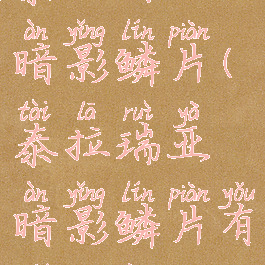 àn yǐng lín piàn
暗影鳞片(
tài lā ruì yà
泰拉瑞亚
àn yǐng lín piàn yǒu
暗影鳞片有